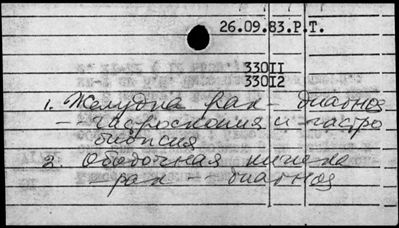 26.09.83.Р.Т.
33011
33012
1. Желудка рак - диагноз
- гастроскопия и гастро
биопсия
2. Ободочная кишка
- рак - диагноз